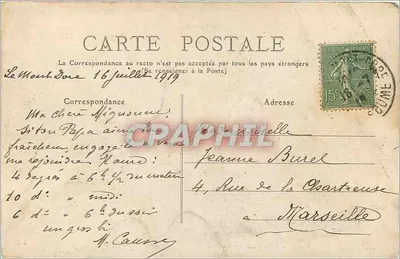 CARTE POSTALE
La Correspondance au recto n'est pas acceptée par tous les pays étrangers
(Se renseigner à la Poste)
Le Mont Dore 16 juillet 1919
Correspondance
Adresse
15
Ma chère Mignonne,
Si ton Papa aime la
fraîcheur, engage le à venir
me rejoindre
4 degrés à 6h du matin
10 d° " midi
6 d° " 6h du soir
un gros bi
M. Causse
CPAPHIL
Mademoiselle
Jeanne Burel
4, Rue de la Chartreuse
à Marseille